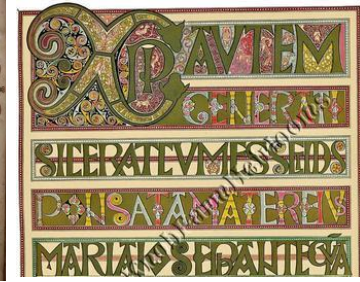 XPI AVTEM
GENERATI
SIC ERAT CVM ESSET DIS
PONSATA MATER EIVS
MARIA IOSEPH ANTEQVA